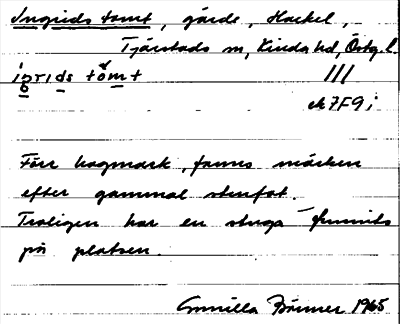 Ingrids tomt, gärde, Hackel,
Tjärstads sn, Kinda hd, Östg. l.
ig̀rids tom̀t ///
ek 7F9i
Förr hagmark, fanns märken
efter gammal stenfot.
Troligen har en stuga funnits
på platsen.
Gunilla Börmer 1965